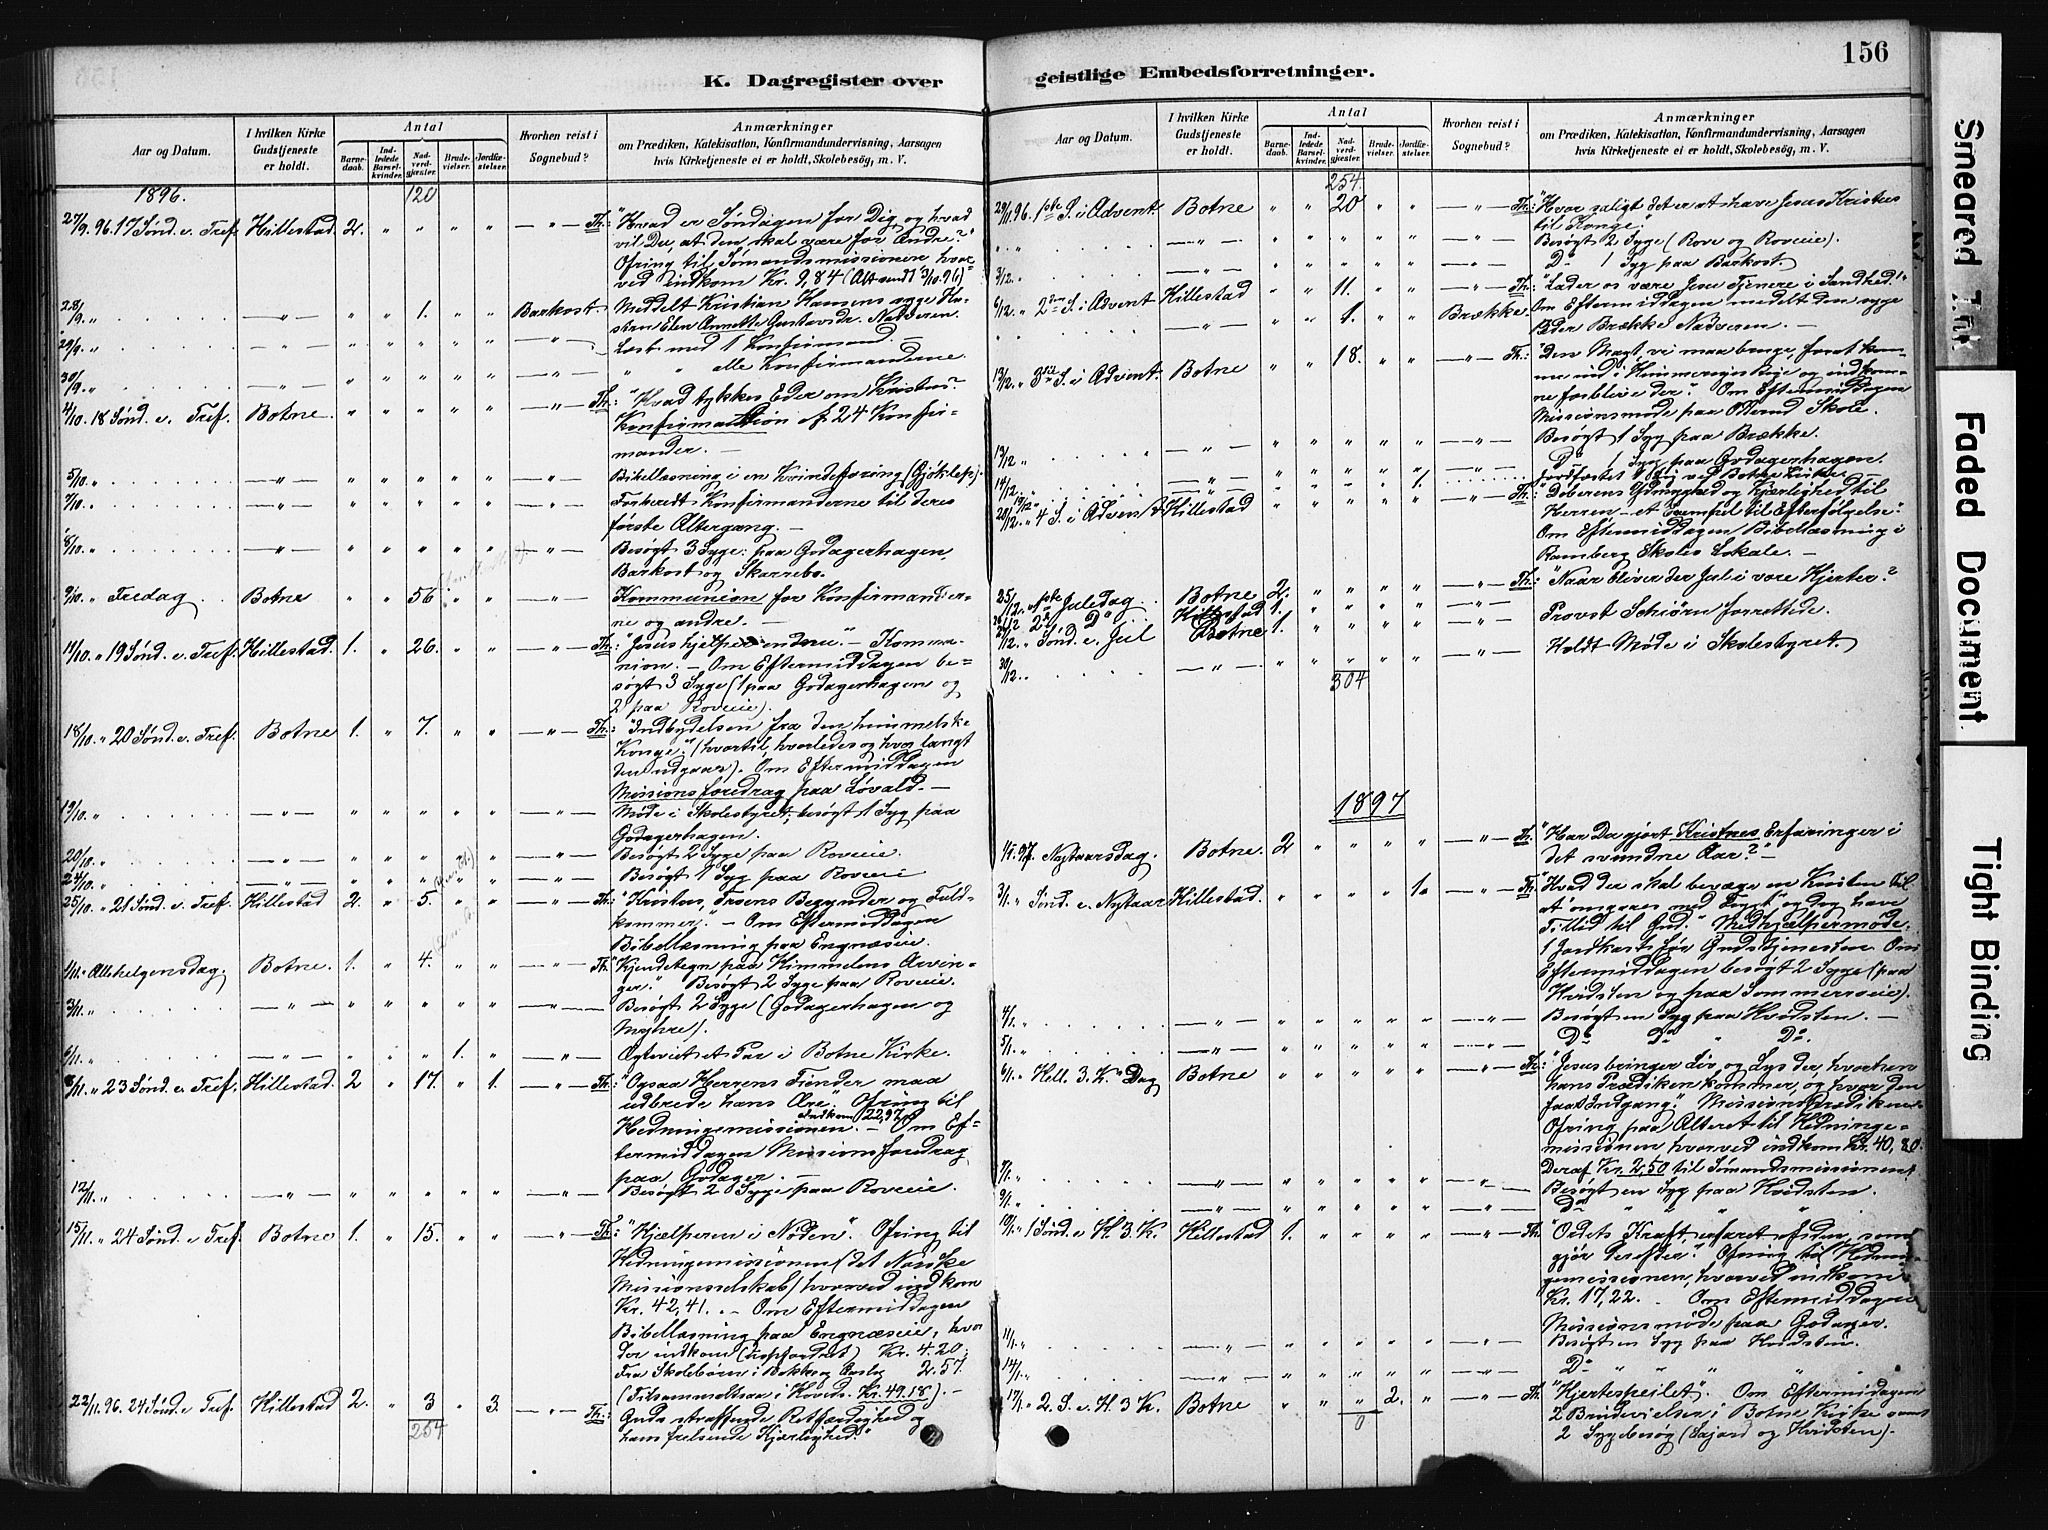 156
K. Dagregister over
geistlige Embedsforretninger.
Aar og Datum.
I hvilken Kirke Gudstjeneste er holdt.
Antal
Barnedaab.
Indledede Barselkvinder.
Nadverdgjæster.
Brudevielser.
Jordfæstelser.
Hvorhen reist i Sognebud?
Anmærkninger
om Prædiken, Katekisation, Konfirmandundervisning, Aarsagen
hvis Kirketjeneste ei er holdt, Skolebesøg, m. V.
1896. 120
27/9. 96. 17 Sønd. e. Tref. Hillestad 2. " " " " — " — Th: "Hvad er Søndagen for Dig, og hvad
vil Du, at den skal være for Andre?"
Ofring til Sømandsmissionen hvor-
ved indkom Kr. 9,84 (Afsendt 3/10.96)
28/9. " — " — " " 1. " " Barkost. Meddelt Kristian Hansens syge Hu-
stru Elen Annette Gustavsdr. Nadveren.
29/9. " — " — " " " " " — " — Læst med 1 Konfirmand. —
30/9. " — " — " " " " " — " — " " alle Konfirmanderne.
4/10. 18 Sønd. e. Tref. Botne. " " " " " — " — Th: "Hvad tykkes Eder om Kristus?"
Konfirmation af 24 Konfir-
mander. —
5/10. " — " — " " " " " — " — Bibellæsning i en Kvindeforening (Gjøklep).
7/10. " — " — " " " " " — " — Forberedt Konfirmanderne til deres
første Altergang. —
8/10. " — " — " " " " " — " — Besøgt 3 Syge: paa Godagerhagen,
Barkost og Skarrebo.
9/10. " Fredag. Botne " " 56 " " — " — Kommunion for Konfirmander-
ne og andre. —
11/10. " 19 Sønd. e. Tref. Hillestad. 1. " 26. " " — " — Th: "Jesus hjelpe endnu" — Kommu-
nion. — Om Eftermiddagen be-
søgt 3 Syge (1 paa Godagerhagen og
2 paa Roveie).
18/10. " 20 Sønd. e. Tref. Botne 1. " 7. " " — " — Th: "Indbydelsen fra den himmelske
Konge." (hvortil, hvorledes og hvor langt
den udgaar). Om Eftermiddagen
Missionsforedrag paa Løvald. —
19/10. " — " — " " " " " — " — Møde i Skolestyret; besøgt 1 Syg paa
Godagerhagen.
20/10. " — " — " " " " " — " — Besøgt 2 Syge paa Roveie.
24/10. " — " — " " " " " — " — Besøgt 1 Syg paa Roveie
25/10. " 21 Sønd. e. Tref. Hillestad 2. " 5. " " — " — Th: "Kristus, Troens Begynder og Fuld-
kommer." — Om Eftermiddagen
Bibellæsning paa Engnæseie.
1/11. " Allehelgensdag. Botne. 1. " 4. " " — " — Th: "Kjendetegn paa Himmelens Arvin-
ger." Besøgt 2 Syge paa Roveie.
3/11. " — " — " " " " " — " — Besøgt 2 Syge (Godagerhagen og
Myhre).
6/11. " — " — " " " 1. " — " — Ægteviet et Par i Botne Kirke.
8/11. " 23 Sønd. e. Tref. Hillestad. 2 " 17. " 1. — " — Th: "Ogsaa Herrens Fiender maa
udbrede hans Ære". Ofring til
Hedningemissionen. indkom 22,97 — Om Ef-
termiddagen Missionsforedrag
paa Godager. —
12/11. " — " — " " " " " — " — Besøgt 2 Syge paa Roveie.
15/11. " 24 Sønd. e. Tref. Botne 1. " 15. " " — " — Th: "Hjælperen i Nøden". Ofring til
Hedningemissionen (det Norske
Missionsselskab) hvorved indkom
Kr. 42,41. — Om Eftermiddagen
Bibellæsning paa Engnæseie, hvor
der indkom Kr. 4.20.
Fra Skolebørn i 2.57.
(Tilsammen Kr. 49.18). —
22/11. 96. 24 Sønd. e. Tref. Hillestad 2. " 3 " 3. — " — Th: Guds straffende Retfærdighed og
hans frelsende Kjærlighed."
254
254.
29/11. 96. 1ste S. i Advent. Botne " " 20 " " — " — Th: "Hvor saligt det er at have Jesus Kristus
til Konge."
" " — " — " " " " " — " — Besøgt 2 Syge (Rove og Roveie).
3/12. " — " — " " " " " — " — Do 1 Syg paa Barkost
6/12. " 2den S. i Advent Hillestad " " 11. " " — " — Th: "Lader os være Jesu Tjenere i Sandhed!"
" " — " — " " 1. " " Brække. Om Eftermiddagen meddelt den syge
Peder Brække Nadveren. —
13/12. " 3die S. i Advent. Botne " " 18. " " — " — Th: "Den Magt, vi maa bruge, forat kom-
me ind i Himmeriges Rige og indkom-
ne forblive der." Om Eftermiddagen
Missionsmøde paa Olterud Skole.
13/12 " — " — " " " " " — " — Besøgt 1 Syg paa Brække.
14/12. " — " — " " " " " — " — Do 1 Syg paa Godagerhagen.
19/12. " — " — " " " " 1. Jordfæstet 1 Lig ved Botne Kirke
20/12. " 4 S. i Advent Hillestad " " " " " — " — Th: "Døberens Ydmyghed og Kjærlighed til
Herren — et Exempel til Efterfølgelse."
Om Eftermiddagen Bibellæsning i
Ramberg Skoles Lokale. —
25/12. " 1ste Juledag. Botne 2. " " " " — " — Th: "Naar bliver der Jul i vore Hjerter?
26/12 2. Do Hillestad 1. " " " " — " — Provst Schiørn forrettede.
27/12. " Sønd. e. Jul Botne 1. " " " "
30/12. " — " — " " " " " — " — Holdt Møde i Skolestyret.
304
1897
1/1. 97. Nytaarsdag. Botne. 2 " " " " — " — Th: "Har Du gjort Kristnes Erfaringer i
det svundne Aar?" —
3/1. " Sønd. e. Nytaar Hillestad. " " " " 1. — " — Th: "Hvad der skal bevæge en Kristen til
at omgaaes med Frygt og dog have
Tillid til Gud." Medhjælpermøde.
1 Jordkast før Gudstjenesten. Om
Eftermiddagen besøgt 2 Syge (paa
Hvidsten og paa Sommerrøeie).
4/1. " — " — " " " " " — " — Besøgt en Syg paa Hvidsten. —
5/1. " — " — " " " " " — " — Do Do " Do.
6/1. " Hell. 3. K. Dag Botne " " " " " — " — Th: "Jesus bringer Liv og Lys der, hvorhen
hans Prædiken kommer, og hvor den
faar Indgang." Missionsprædiken.
Ofring paa Alteret til Hedninge-
missionen hvorved indkom Kr. 40,80.
Deraf Kr. 2,50 til Sømandsmissionen.
7/1. " — " — " " " " " — " — Besøgt en Syg paa Hvidsten.
9/1. " — " — " " " " " — " — Do " " " "
10/1. " 1 Sønd. e. H. 3 K. Hillestad 1. " " " " — " — Th: "Ordets Kraft erfaret af den, som
gjør derefter." Ofring til Hednin-
gemissionen, hvorved indkom
Kr. 17,22. Om Eftermiddagen
Missionsmøde paa Godager.
11/1. " — " — " " " " " — " — Besøgt en Syg paa Hvidsten.
14/1. " — " — " " " " " — " — Do " " " "
17/1. " 2. S. e. H. 3 K. Botne " " " 2. " — " — Th: "Hjertespeilet". Om Eftermidagen
2 Brudevielser i Botne Kirke samt
2 Sygebesøg (Sajord og Hvidsten).
0
Smeared Ink
Faded Document
Tight Binding